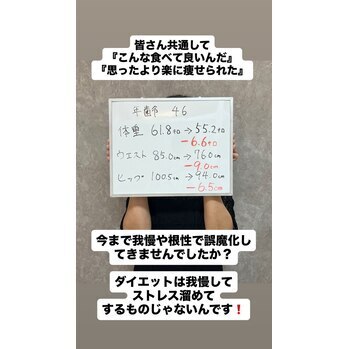 皆さん共通して
『こんな食べて良いんだ』
『思ったより楽に痩せられた』
年齢 46
体重 61.8キロ→55.2キロ
-6.6キロ
ウエスト 85.0cm→76.0cm
-9.0cm
ヒップ 100.5cm→94.0cm
-6.5cm
今まで我慢や根性で誤魔化し
てきませんでしたか？
ダイエットは我慢して
ストレス溜めて
するものじゃないんです❗